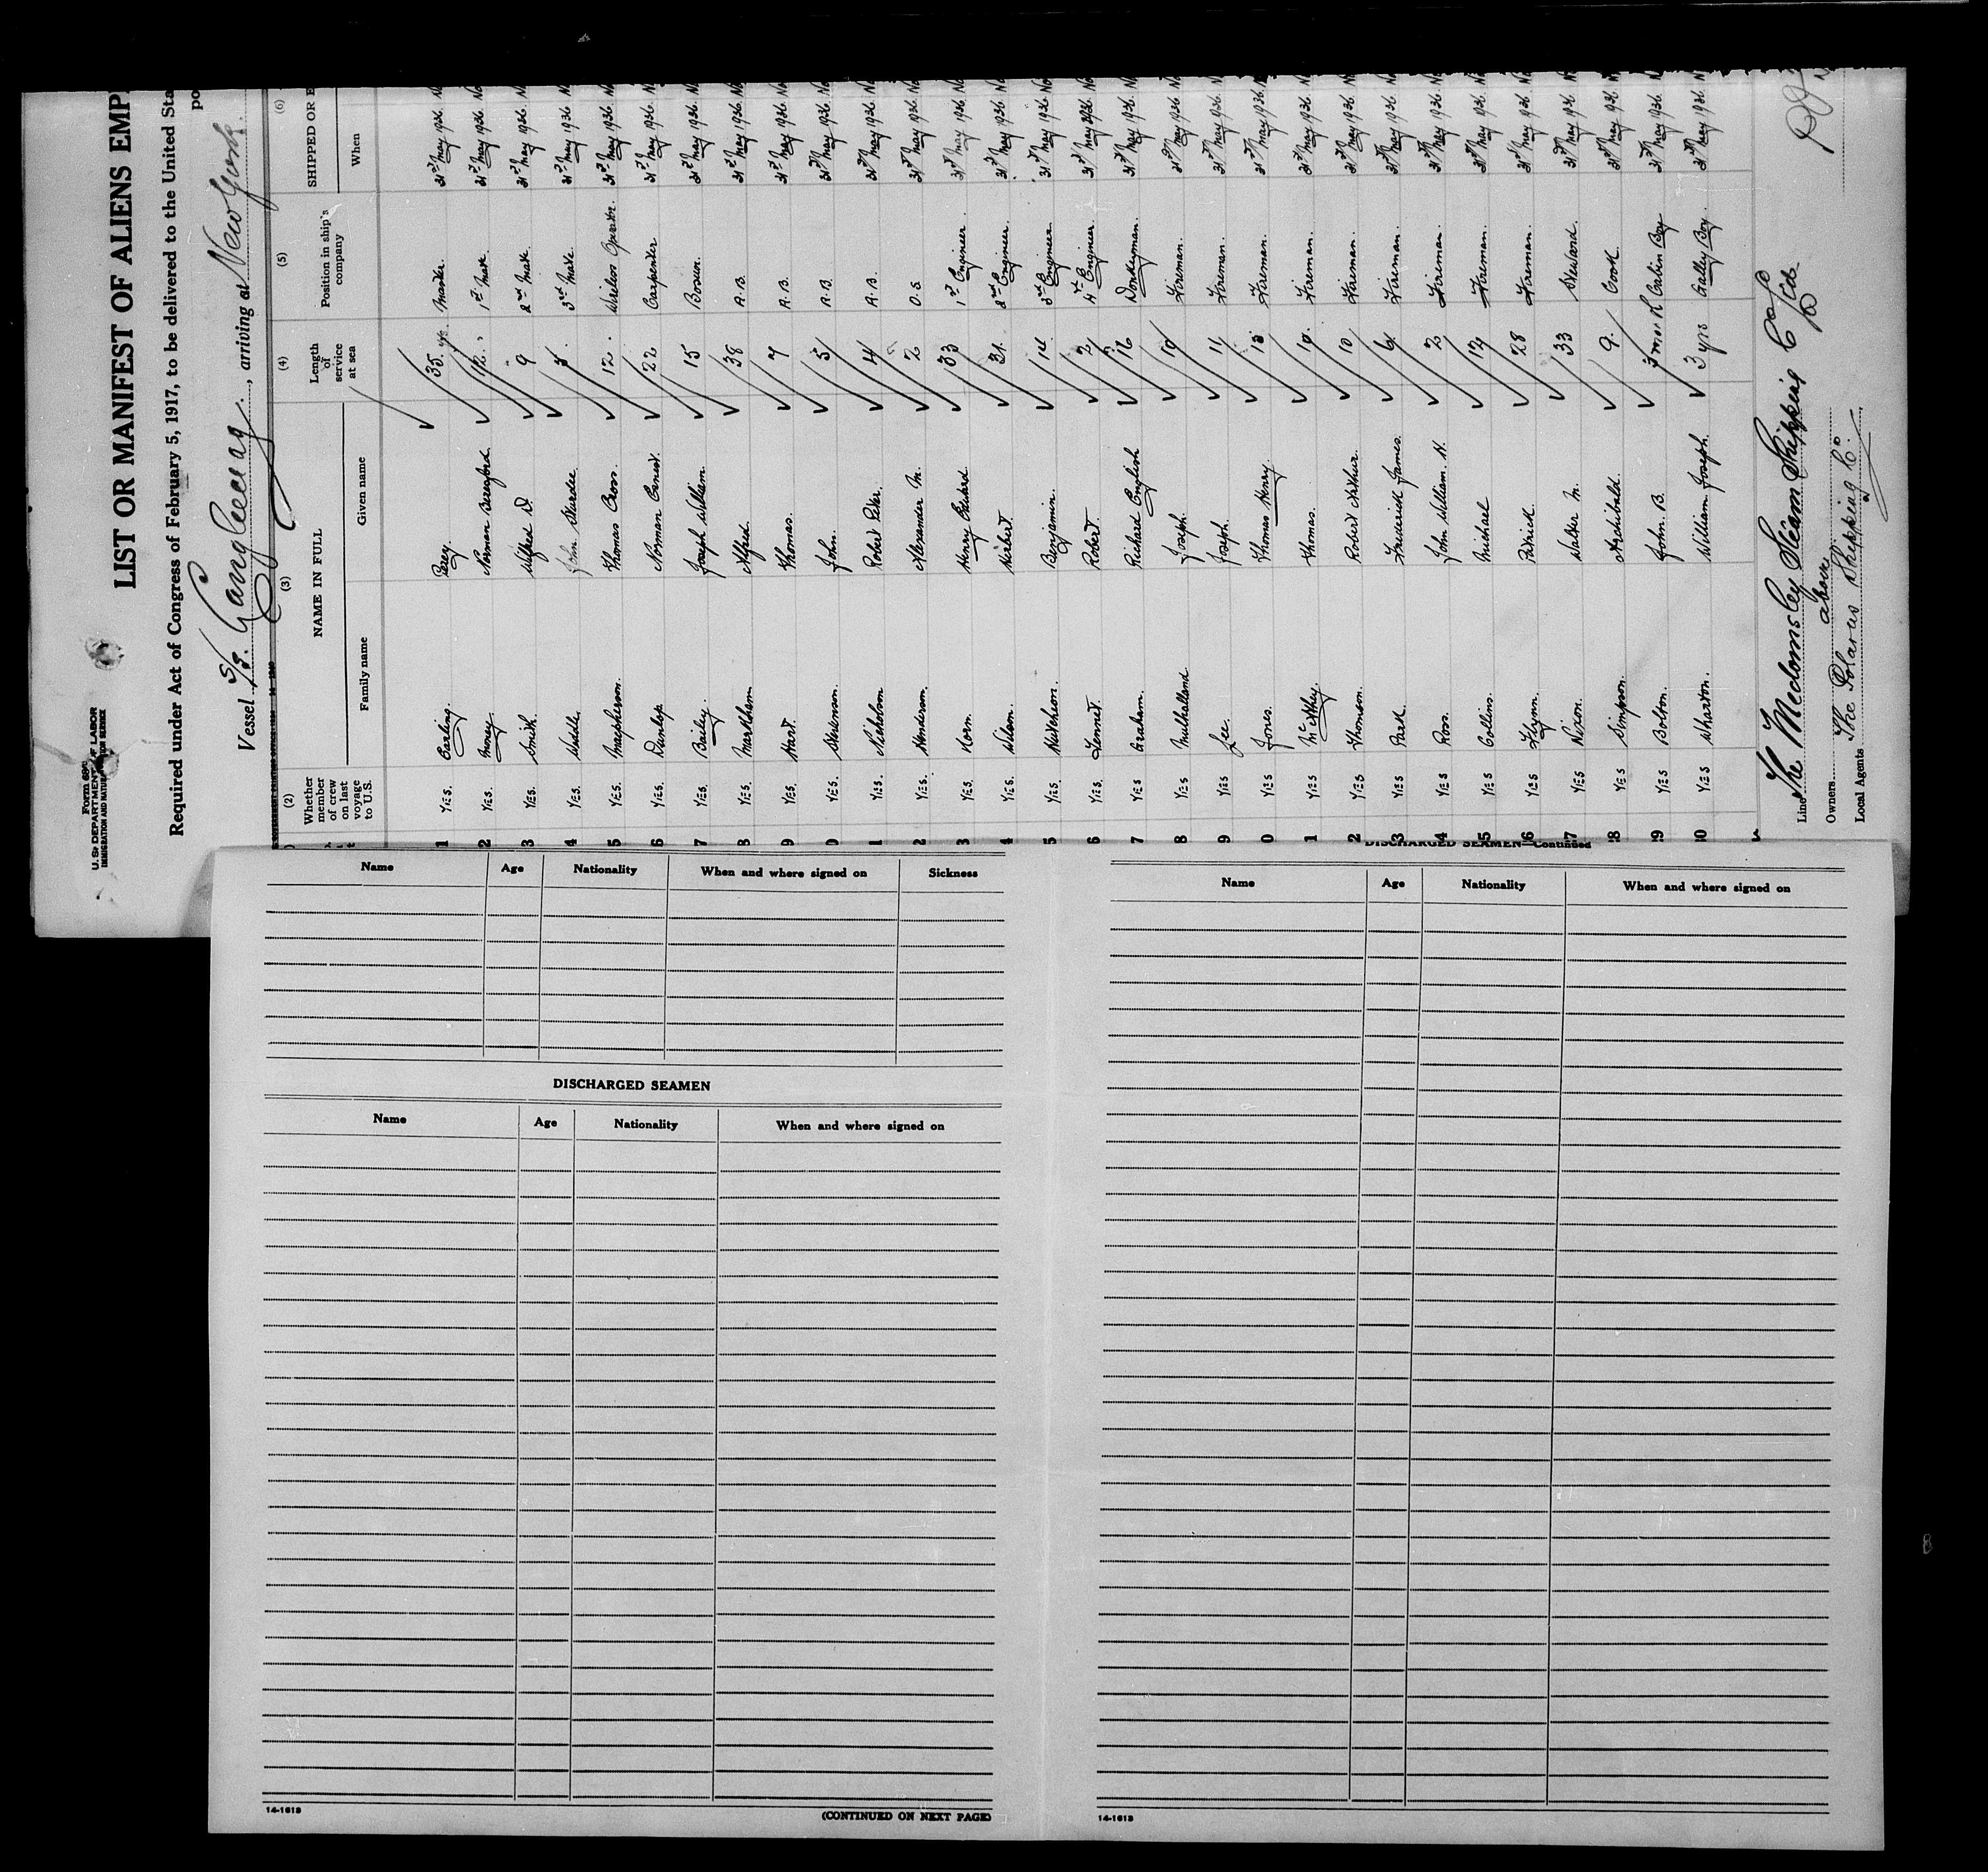 Form 680
U. S. DEPARTMENT OF LABOR
IMMIGRATION AND NATURALIZATION SERVICE
LIST OR MANIFEST OF ALIENS EMP
Required under Act of Congress of February 5, 1917, to be delivered to the United Sta
po
Vessel S/S., arriving at New York.
(2) (3) (4) (5) (6)
Whether member of crew on last voyage to U.S. NAME IN FULL Length of service at sea Position in ship's company SHIPPED OR E
Family name Given name When
1 YES. Carling. Percy. 35 yrs. Master. 31st May 1936. No
2 YES. Money. Norman Beresford. 12. 1st Mate. 31st May 1936 No
3 YES. Smith. Alfred D. 9 2nd Mate. 31st May 1936 N
4 YES. Waddle. John 5. 3rd Mate. 31st May 1936 N
5 YES. Macpherson. Thomas Cross. 12. Wireless Operator. 31st May 1936 N
6 YES. Dunlop. Norman Ernest. 22 Carpenter 31st May 1936. N
7 YES. Bailey. Joseph William. 15 Bosun. 31st May 1936 N
8 YES. Markham Alfred. 38 A.B. 31st May 1936 No
9 YES. Hart. Thomas. 7 A.B. 31st May 1936 No
0 YES. Stevenson. John. 5 A.B. 31st May 1936 N
1 YES. Nicholson Robert Peter. 14 A.B. 31st May 1936 N
2 YES. Henderson. Alexander M. 2 O.S. 31st May 1936 No
3 YES. Horn. Henry Richard. 33 1st Engineer. 31st May 1936 N
4 YES. Wilson. Herbert. 31. 2nd Engineer. 31st May 1936 N
5 YES. Hutcheson. Benjamin. 14. 3rd Engineer 31st May 1936 N
6 YES. Robert. 2 4th Engineer. 31st May 1936 No
7 YES Graham. Richard English 16 Donkeyman. 31st May 1936. N
8 YES Mulholland Joseph. 10 Fireman. 31st May 1936 N
9 YES Lee. Joseph. 11 Fireman. 31st May 1936. N
0 YES Jones. Thomas Henry. Fireman. 31st May 1936. N
1 YES Thomas. 10. Fireman. 31st May 1936 N
2 YES Thomson. Robert Arthur. 10 Fireman. 31st May 1936 N
3 YES Park. Frederick James. Fireman. 31st May 1936. N
4 YES Ross. John William. N. 2 Fireman. 31st May 1936 N
5 YES Collins. Michael 12 Fireman. 31st May 1936. N
26 YES Flynn. Patrick. 28 Fireman. 31st May 1936 N
27 YES Nixon. Walter M. 33 Steward. 31st May 1936 N
28 YES Simpson. Archibald. 9. Cook 31st May 1936. N
29 YES Bolton. John. B. 3 mos Cabin Boy 31st May 1936. N
30 YES Wharton. William Joseph. 3 yrs Galley Boy. 31st May 1936. N
Line The Medomsley Steam Shipping Co
Owners above
Local Agents The Polarus Shipping Co.
Name Age Nationality When and where signed on Sickness
DISCHARGED SEAMEN
Name Age Nationality When and where signed on
14-1613 (CONTINUED ON NEXT PAGE)
DISCHARGED SEAMEN—Continued
Name Age Nationality When and where signed on
14-1613